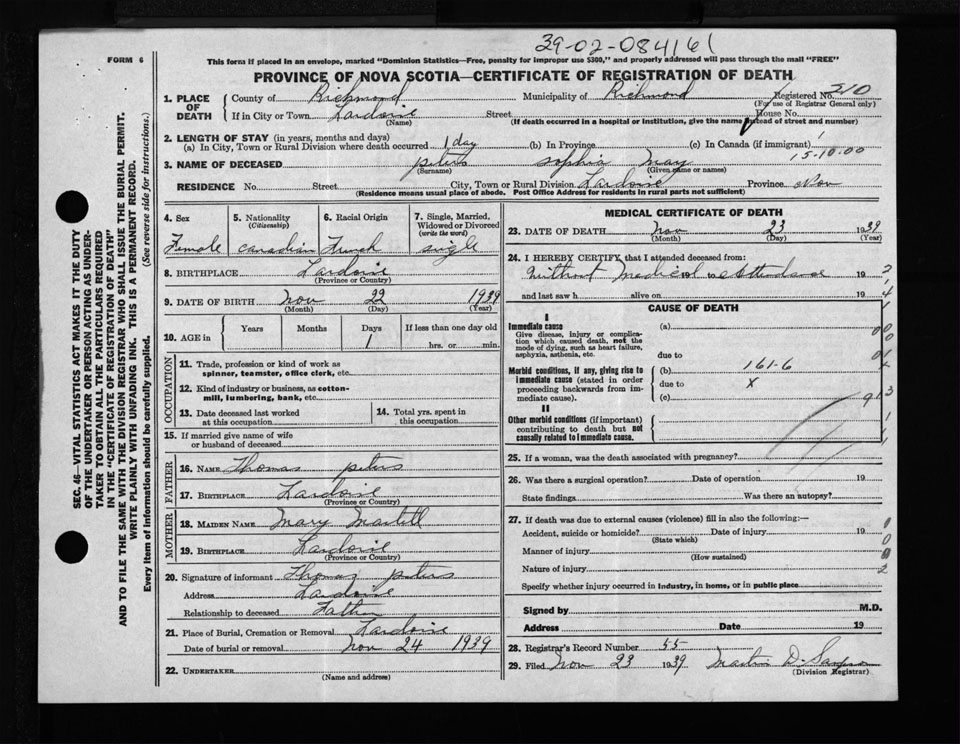 39-02-084161
FORM 6
This form if placed in an envelope, marked "Dominion Statistics—Free, penalty for improper use $300," and properly addressed will pass through the mail "FREE"
PROVINCE OF NOVA SCOTIA—CERTIFICATE OF REGISTRATION OF DEATH
1. PLACE OF DEATH
County of Richmond Municipality of Richmond Registered No. 210
(For use of Registrar General only)
If in City or Town Lardoise Street House No.
(Name) (If death occurred in a hospital or institution, give the name instead of street and number)
2. LENGTH OF STAY (in years, months and days)
(a) In City, Town or Rural Division where death occurred 1 day (b) In Province (c) In Canada (if immigrant)
15-10.00
3. NAME OF DECEASED peters sophia May
(Surname) (Given name or names)
RESIDENCE No. Street City, Town or Rural Division Lardoise Province Nov
(Residence means usual place of abode. Post Office Address for residents in rural parts not sufficient)
4. Sex
Female
5. Nationality
(Citizenship)
canadian
6. Racial Origin
French
7. Single, Married, Widowed or Divorced
(write the word)
single
8. BIRTHPLACE Lardoise
(Province or Country)
9. DATE OF BIRTH Nov 22 1939
(Month) (Day) (Year)
10. AGE in
Years Months Days If less than one day old
1 hrs. or min.
OCCUPATION
11. Trade, profession or kind of work as
spinner, teamster, office clerk, etc.
12. Kind of industry or business, as cotton-
mill, lumbering, bank, etc.
13. Date deceased last worked
at this occupation
14. Total yrs. spent in
this occupation
15. If married give name of wife
or husband of deceased
FATHER
16. NAME Thomas peters
17. BIRTHPLACE Lardoise
(Province or Country)
MOTHER
18. MAIDEN NAME Mary Martell
19. BIRTHPLACE Lardoise
(Province or Country)
20. Signature of informant Thomas peters
Address Lardoise
Relationship to deceased Father
21. Place of Burial, Cremation or Removal Lardoise
Date of burial or removal Nov 24 1939
22. UNDERTAKER
(Name and address)
MEDICAL CERTIFICATE OF DEATH
23. DATE OF DEATH Nov 23 1939
(Month) (Day) (Year)
24. I HEREBY CERTIFY that I attended deceased from:
without Medical 19 to attendance 19
and last saw h alive on 19
CAUSE OF DEATH
I
Immediate cause
Give disease, injury or complication which caused death, not the mode of dying, such as heart failure, asphyxia, asthenia, etc.
(a)
due to
Morbid conditions, if any, giving rise to immediate cause (stated in order proceeding backwards from immediate cause).
(b) 161-6
due to x
(c)
II
Other morbid conditions (if important) contributing to death but not causally related to immediate cause.
25. If a woman, was the death associated with pregnancy?
26. Was there a surgical operation? Date of operation 19
State findings Was there an autopsy?
27. If death was due to external causes (violence) fill in also the following:—
Accident, suicide or homicide? Date of injury 19
(State which)
Manner of injury
(How sustained)
Nature of injury
Specify whether injury occurred in industry, in home, or in public place
Signed by M.D.
Address Date 19
28. Registrar's Record Number 55
29. Filed Nov 23 1939 Martin D. Sampson
(Division Registrar)
SEC. 46—VITAL STATISTICS ACT MAKES IT THE DUTY
OF THE UNDERTAKER OR PERSON ACTING AS UNDER-
TAKER TO OBTAIN ALL THE PARTICULARS REQUIRED
IN THE "CERTIFICATE OF REGISTRATION OF DEATH"
AND TO FILE THE SAME WITH THE DIVISION REGISTRAR WHO SHALL ISSUE THE BURIAL PERMIT.
WRITE PLAINLY WITH UNFADING INK. THIS IS A PERMANENT RECORD.
Every item of information should be carefully supplied. (See reverse side for instructions.)